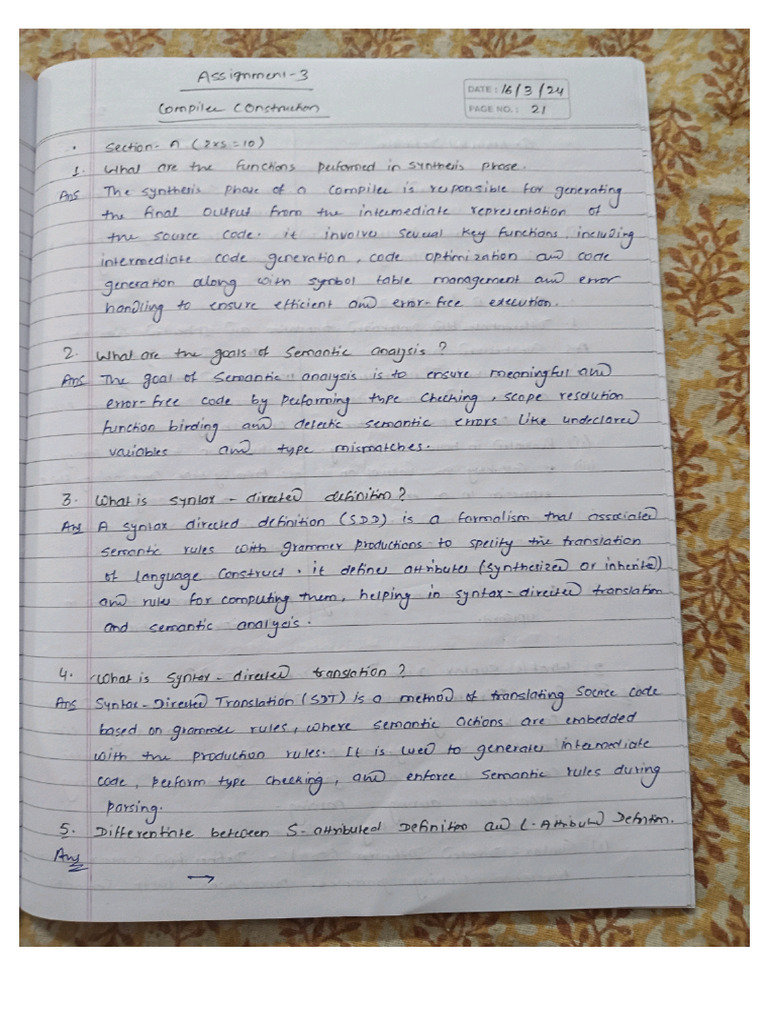 Assignment-3
DATE: 16/3/24
Compiler Construction
PAGE NO.: 21
• Section- A (2x5=10)
1. What are the functions performed in synthesis phase.
Ans The synthesis phase of a compiler is responsible for generating
the final output from the intermediate representation of
the source code. it involves several key functions, including
intermediate code generation, code optimization and code
generation along with symbol table management and error
handling to ensure efficient and error-free execution.
2. What are the goals of Semantic analysis?
Ans The goal of semantic analysis is to ensure meaningful and
error-free code by performing type checking, scope resolution
function binding and detectic semantic errors like undeclared
variables and type mismatches.
3. What is syntax-directed definition?
Ans A syntax directed definition (SDD) is a formalism that associates
semantic rules with grammer productions to specify the translation
of language construct. it defines attributes (synthesized or inherited)
and rules for computing them, helping in syntax-directed translation
and semantic analysis.
4. What is Syntax-directed translation?
Ans Syntax-Directed Translation (SDT) is a method of translating source code
based on grammer rules, where semantic actions are embedded
with the production rules. It is used to generates intermediate
code, perform type checking, and enforce semantic rules during
parsing.
5. Differentiate between S-attributed Definition and L-Attributed Definition.
Ans
→